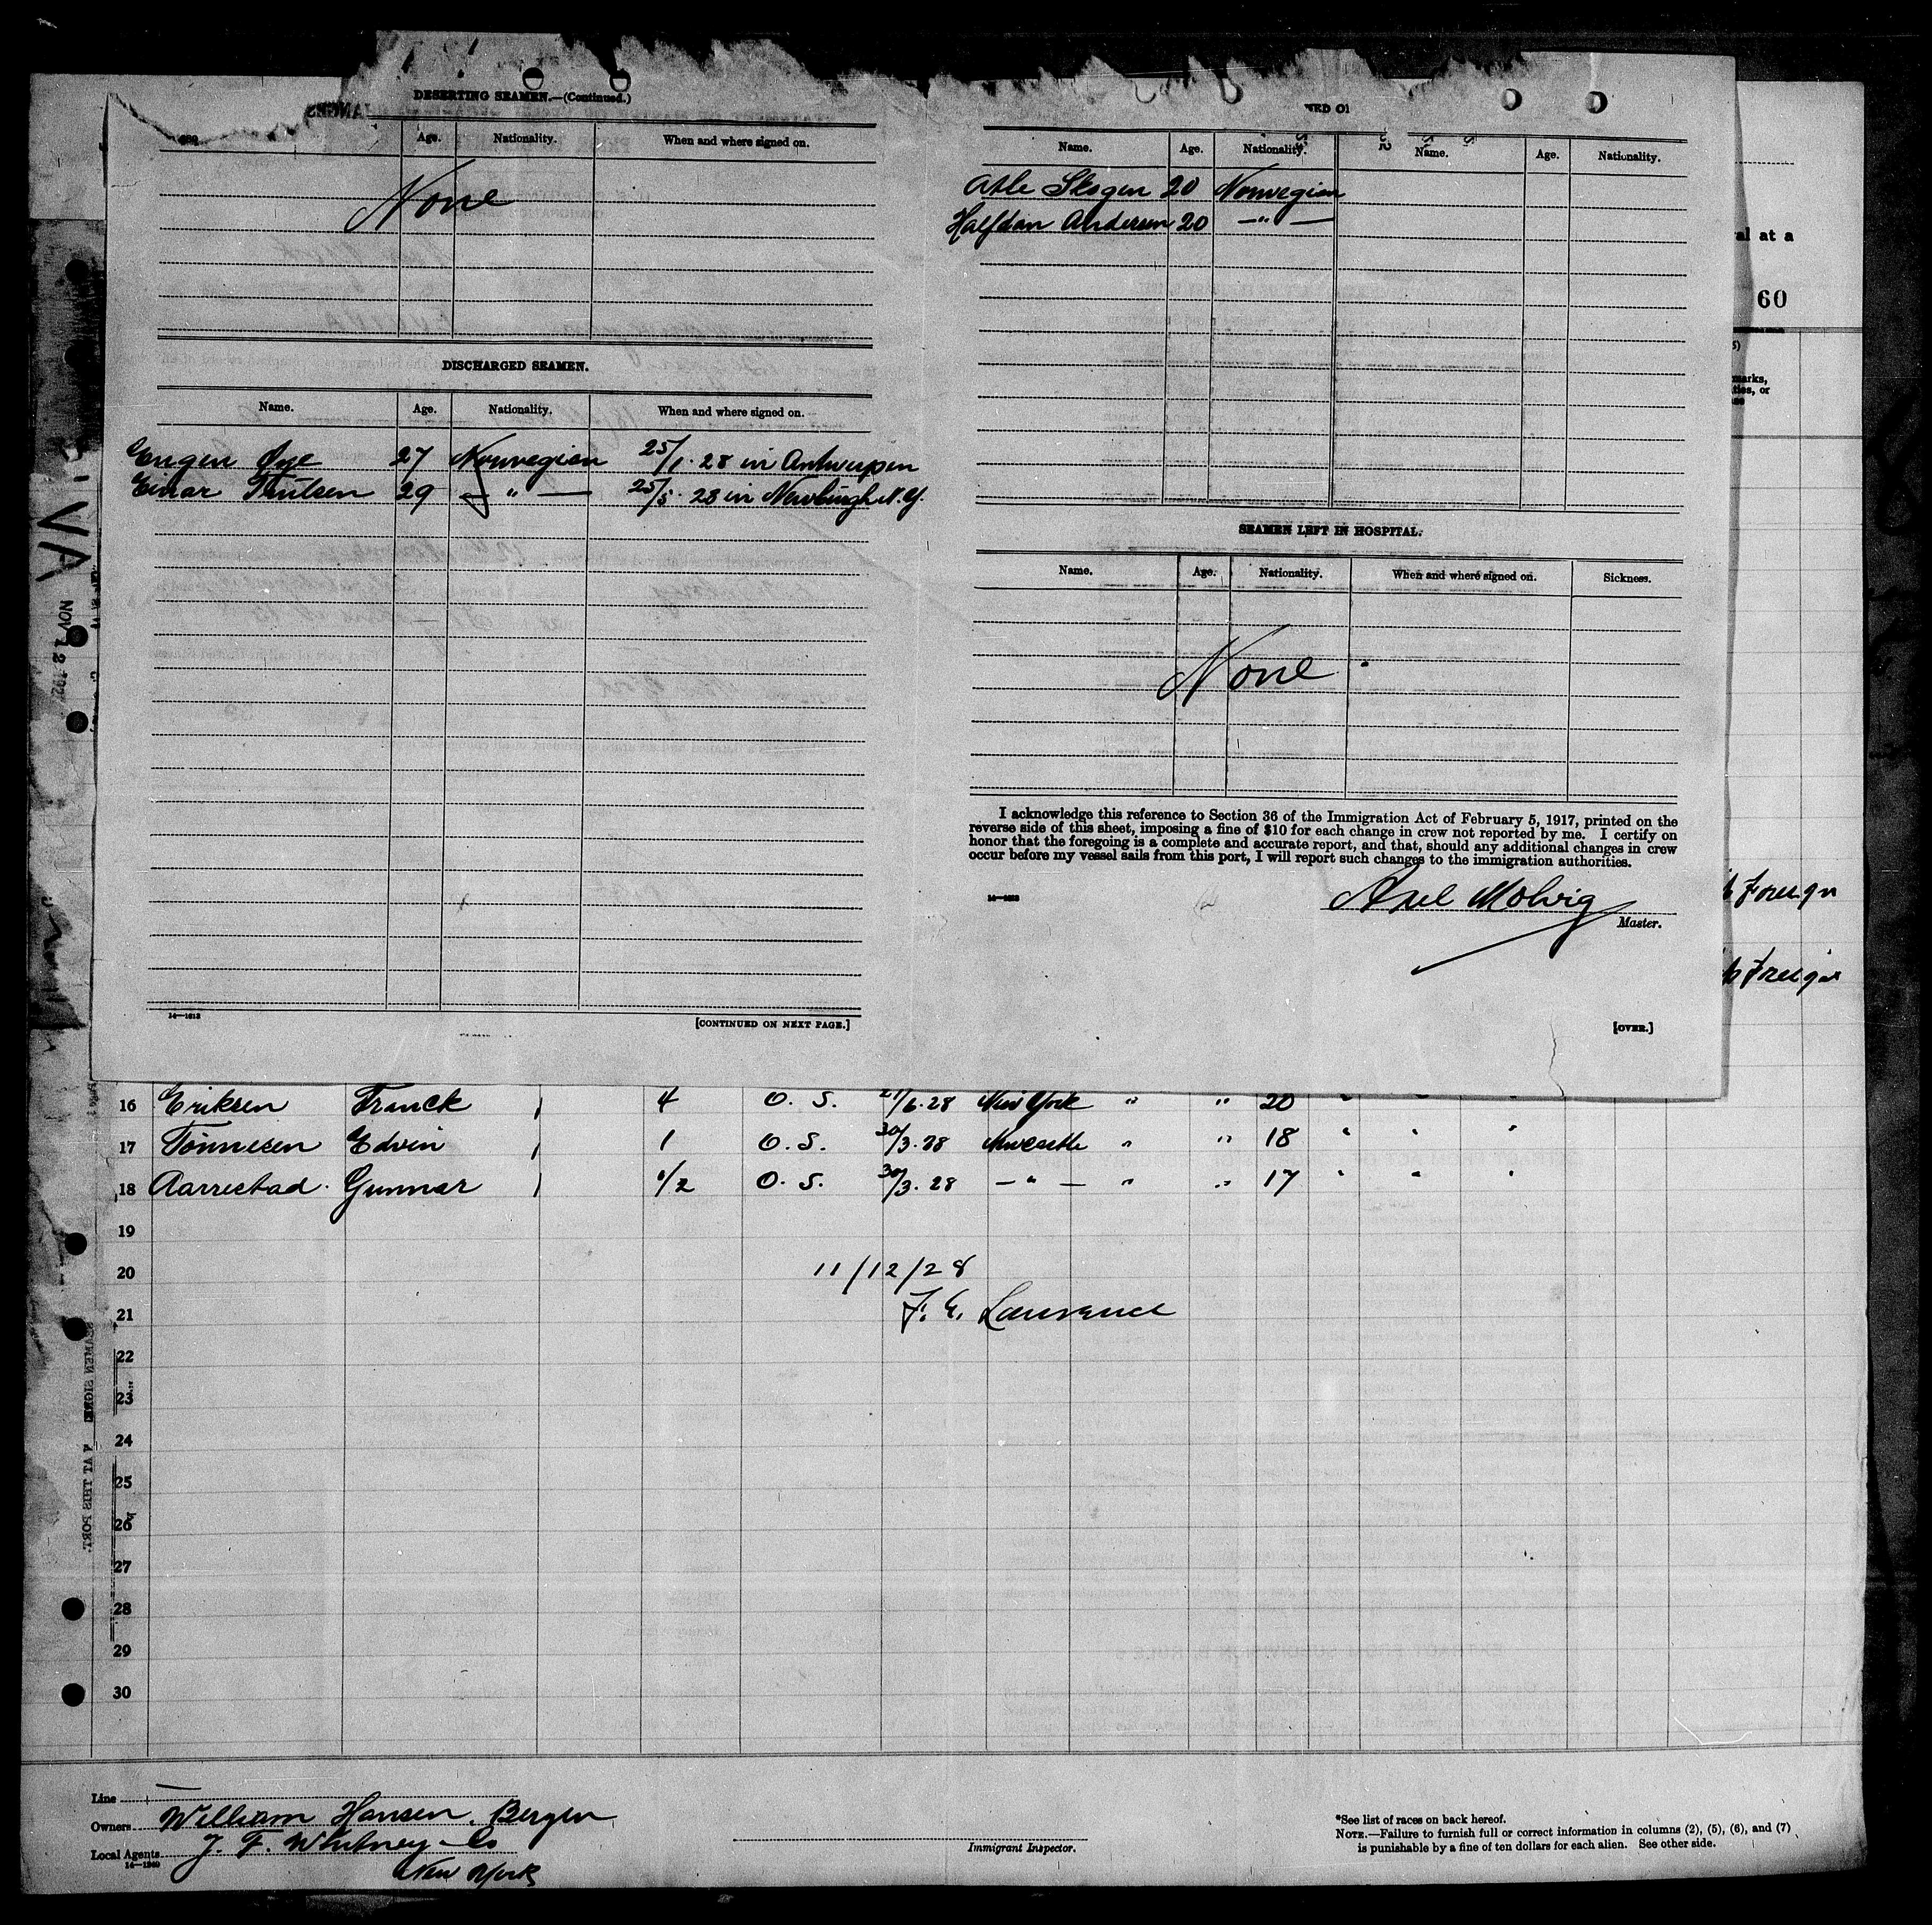 DESERTING SEAMEN.—(Continued.)
Age. Nationality. When and where signed on.
None
DISCHARGED SEAMEN.
Name. Age. Nationality. When and where signed on.
Eugen Øye 27 Norwegian 25/1. 28 in Antwerpen
Einar 29 — " — 25/5. 28 in Newburgh N.Y.
14—1613
[CONTINUED ON NEXT PAGE.]
Name. Age. Nationality. Name. Age. Nationality.
Atle Skogen 20 Norwegian
Halfdan Andersen 20 — " —
SEAMEN LEFT IN HOSPITAL.
Name. Age. Nationality. When and where signed on. Sickness.
None
I acknowledge this reference to Section 36 of the Immigration Act of February 5, 1917, printed on the
reverse side of this sheet, imposing a fine of $10 for each change in crew not reported by me. I certify on
honor that the foregoing is a complete and accurate report, and that, should any additional changes in crew
occur before my vessel sails from this port, I will report such changes to the immigration authorities.
14—1613
Axel Molvig
Master.
[OVER.]
al at a
60
Foreign
Foreign
VA
NOV 12
16 Eriksen Franck 4 O. S. 21/6. 28 New York " " 20 " " "
17 Tønnesen Edvin 1 O. S. 30/3. 28 Newcastle " " 18 " " "
18 Aarrestad Gunnar 1/2 O. S. 30/3. 28 — " — " " 17 " " "
19
20
11/12/28
21
F. G. Lawrence
22
23
24
25
26
27
28
29
30
Line
Owners William Hansen, Bergen
Local Agents J. F. Whitney & Co
14—1240
New York
Immigrant Inspector.
*See list of races on back hereof.
NOTE.—Failure to furnish full or correct information in columns (2), (5), (6), and (7)
is punishable by a fine of ten dollars for each alien. See other side.